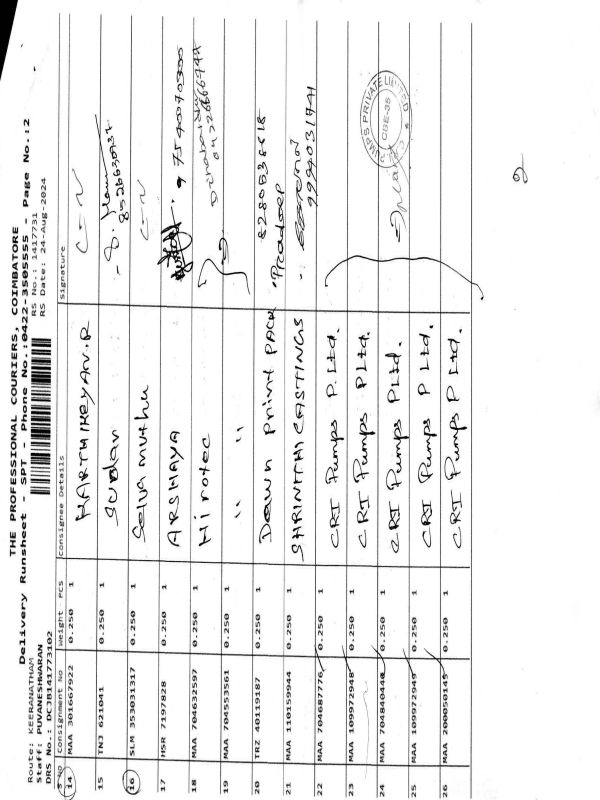 THE PROFESSIONAL COURIERS, COIMBATORE
Delivery Runsheet - SPT - Phone No.:0422-3505555 - Page No.:2
Route: KEERANATHAM
Staff: PUVANESHWARAN
DRS No.: DCJB141773102
RS No.: 1417731
RS Date: 24-Aug-2024
S No Consignment No Weight PCS Consignee Details Signature
14 MAA 301667922 0.250 1 KARTHIKEYAN.R
15 TNJ 621041 0.250 1 Sudan 8526630737
16 SLM 353031317 0.250 1 Selvamuthu
17 HSR 7197828 0.250 1 ARSHAYA 9754070300
18 MAA 704632597 0.250 1 Hirotec
19 MAA 704553561 0.250 1 " "
20 TRZ 40119187 0.250 1 Dawn Print Pack Pradeep 8280536618
21 MAA 110159944 0.250 1 SHRINITHI CASTINGS 9994031941
22 MAA 704687776 0.250 1 CRI Pumps P. Ltd.
23 MAA 109972948 0.250 1 CRI Pumps P Ltd.
24 MAA 704840440 0.250 1 CRI Pumps P Ltd.
25 MAA 109972949 0.250 1 CRI Pumps P Ltd.
26 MAA 200050145 0.250 1 CRI Pumps P Ltd.
PUMPS PRIVATE LIMITED
CBE-35
2